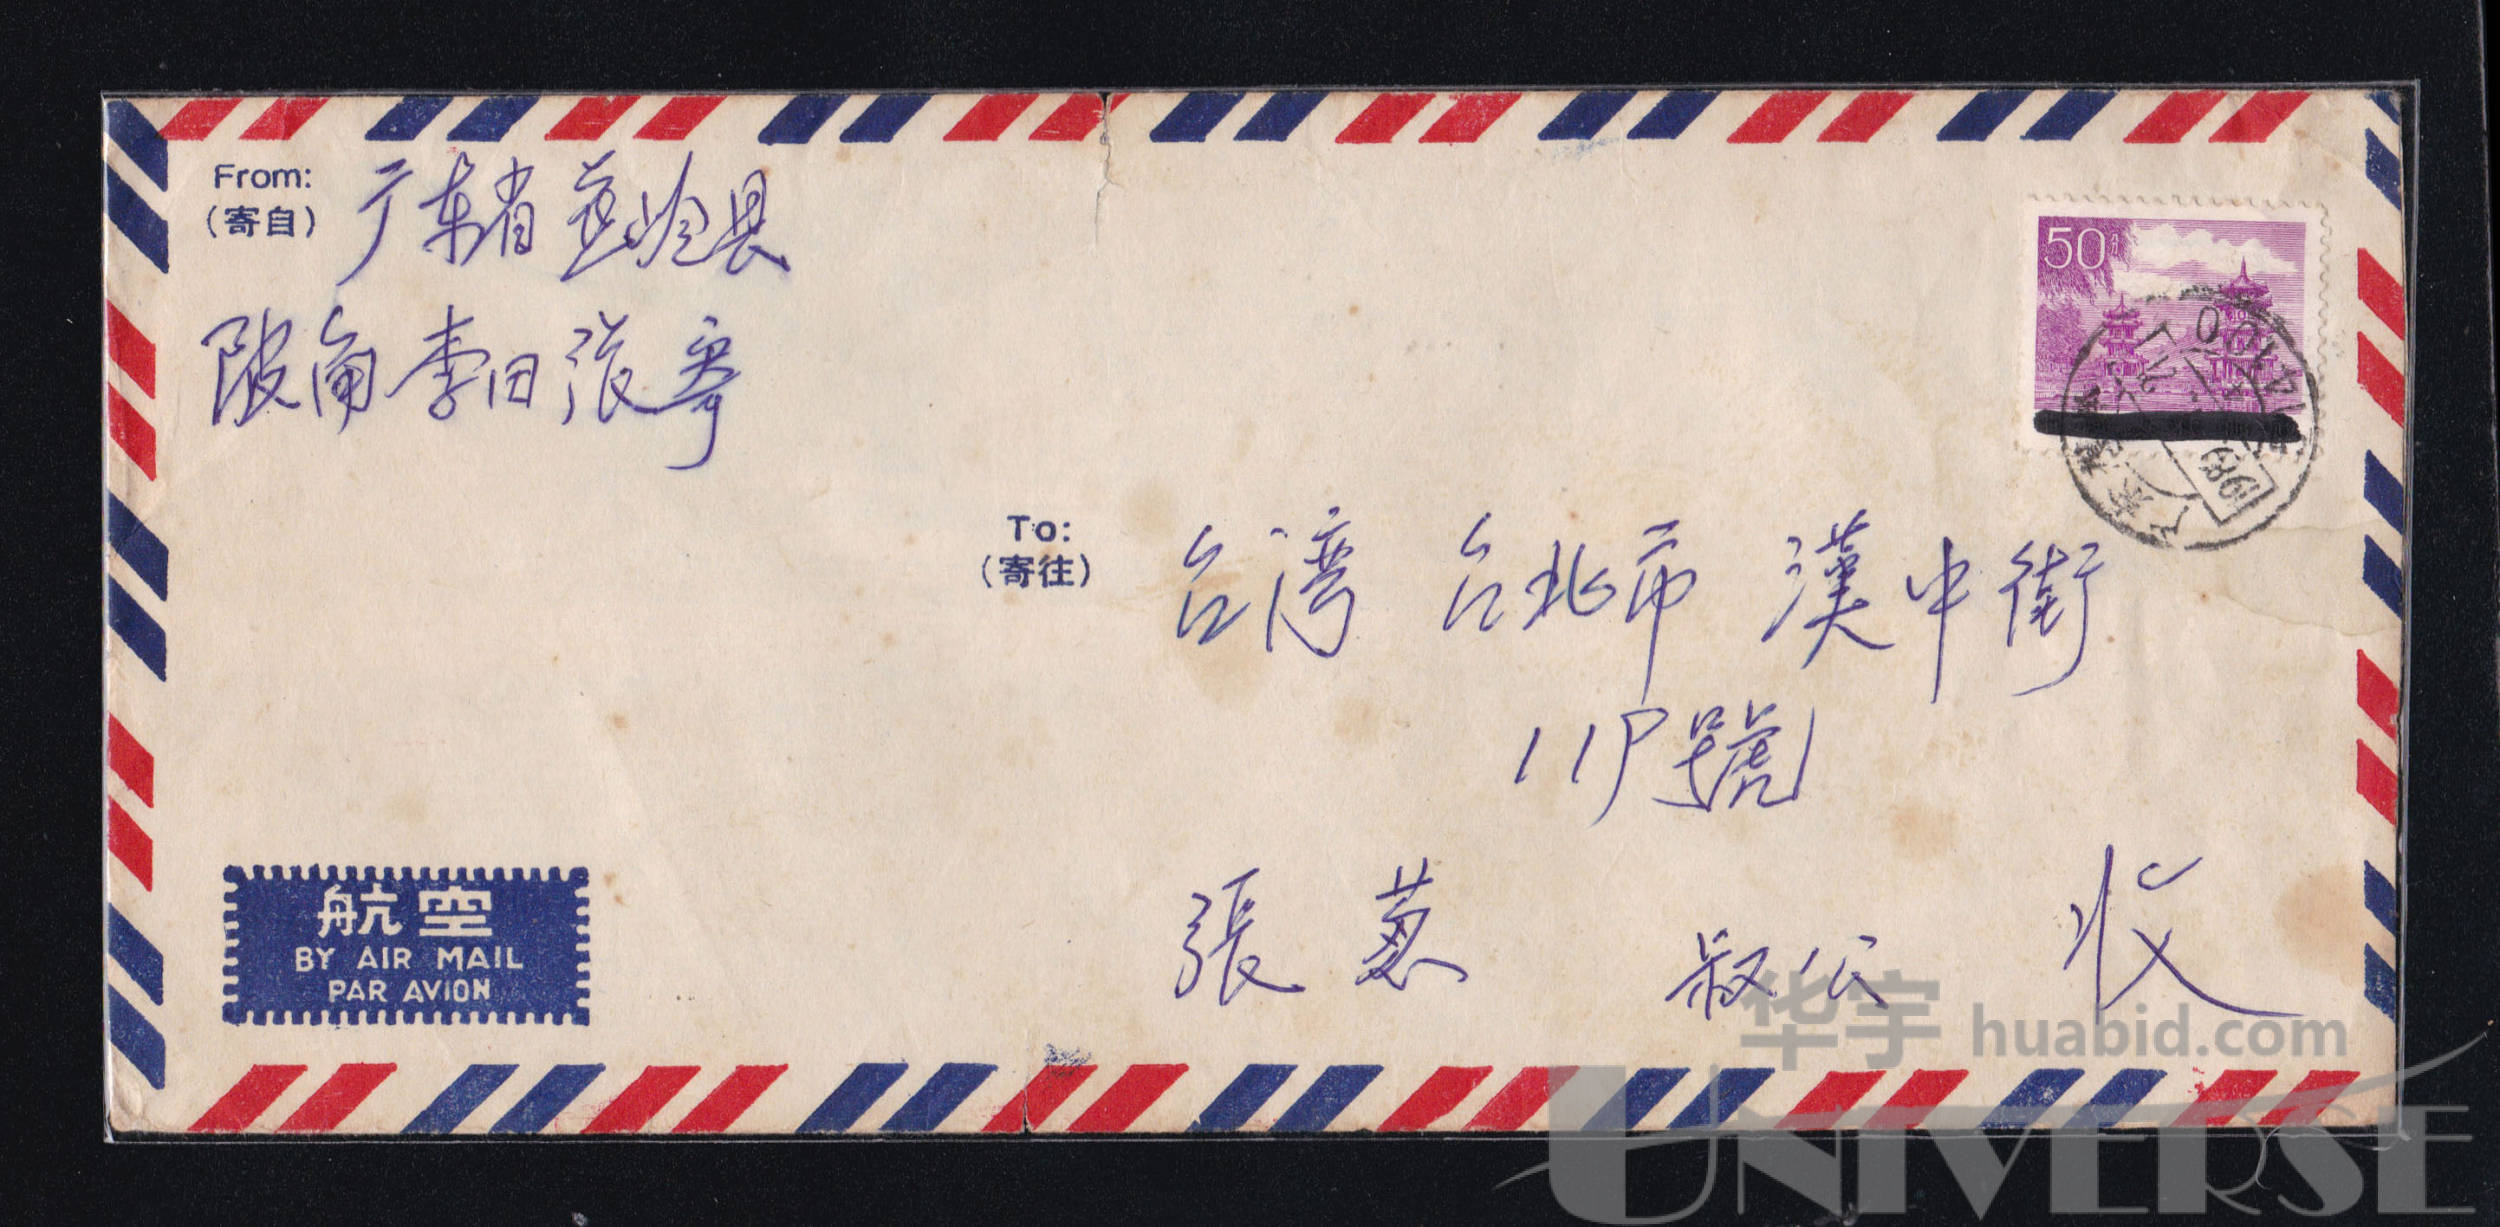 From:
(寄自)
广东省蕉岭县
陂角李田張寄
50分
1989
To:
(寄往)
台湾 台北市 漢中街
119號
張 蔥 叔公 收
航空
BY AIR MAIL
PAR AVION
华宇 huabid.com
UNIVERSE